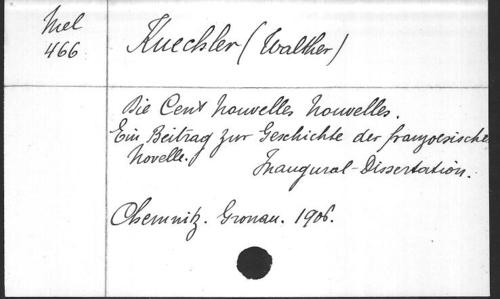 Mel
466
Kuechler (Walther)
Die Cent Nouvelles Nouvelles.
Ein Beitrag zur Geschichte der franzoesische
Novelle.
Inaugural-Dissertation.
Chemnitz. Gronau. 1906.